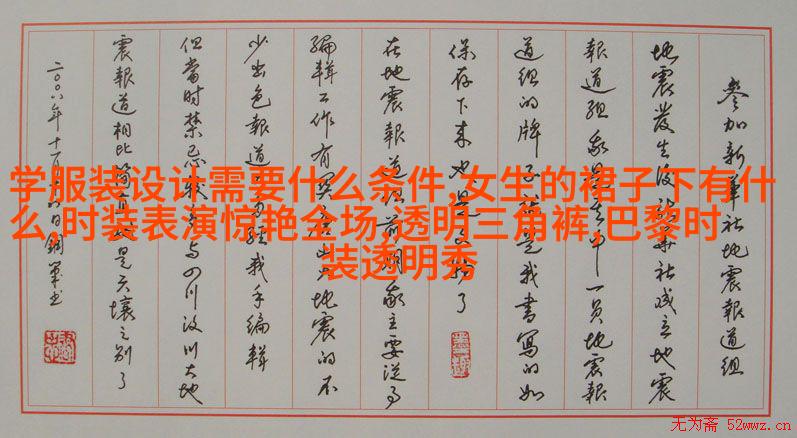 学服装设计需要什么条件,女生的裙子下有什
么,时装表演惊艳全场,透明三角裤,巴黎时
装透明秀
参加新华社地震报道组
地震发生后新华社成立地震
報道组
中一员地震報
道组的牌子
是我書寫的如
保存下来
了
在地震報道组前期我主要从事
编辑工作有关
地震的不
少出色報道
我手编輯
但當时禁忌较
与四川汶川大地
震報道相比简直是天壤之别了
二〇〇八年十
无为斋 52wwz.cn